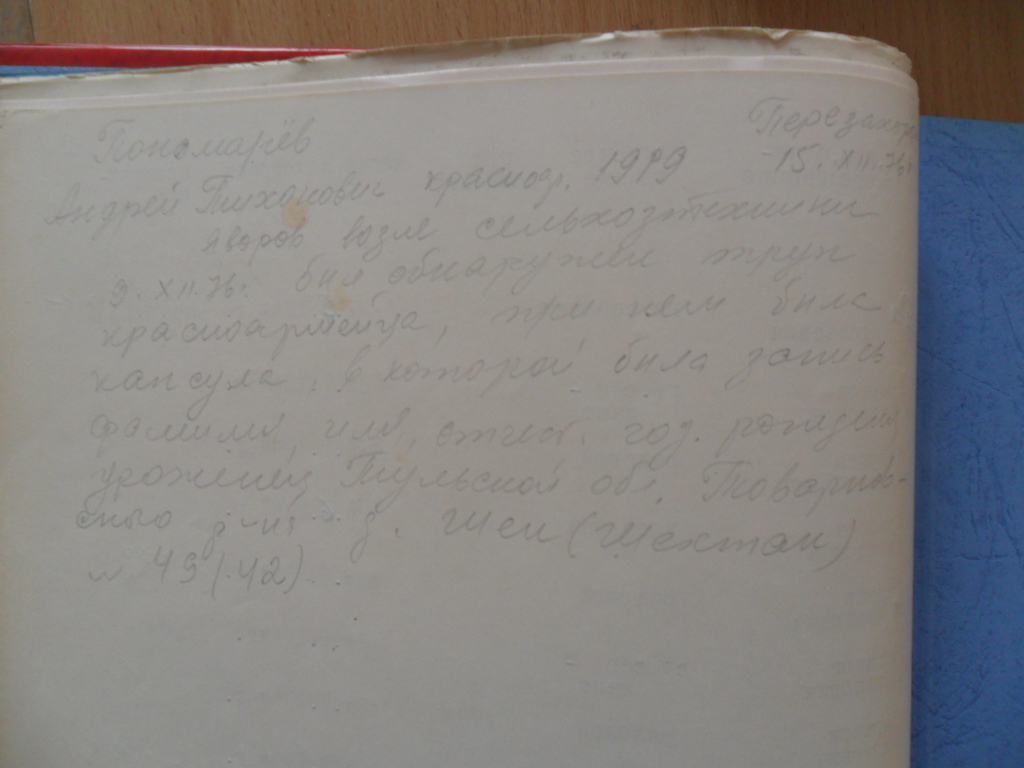 Пономарёв
Перезахор
15. XII.76г
Андрей Тихонович красноар. 1919
возле сельхозтехники
9. XII.76г. был обнаружен труп
красноармейца, при нем была
капсула, в которой была запись
фамилия, имя, отчест. год. рождения
уроженец Тульской обл. Товарков-
ского р-на д. Шен (Шехтан)
49 (42)